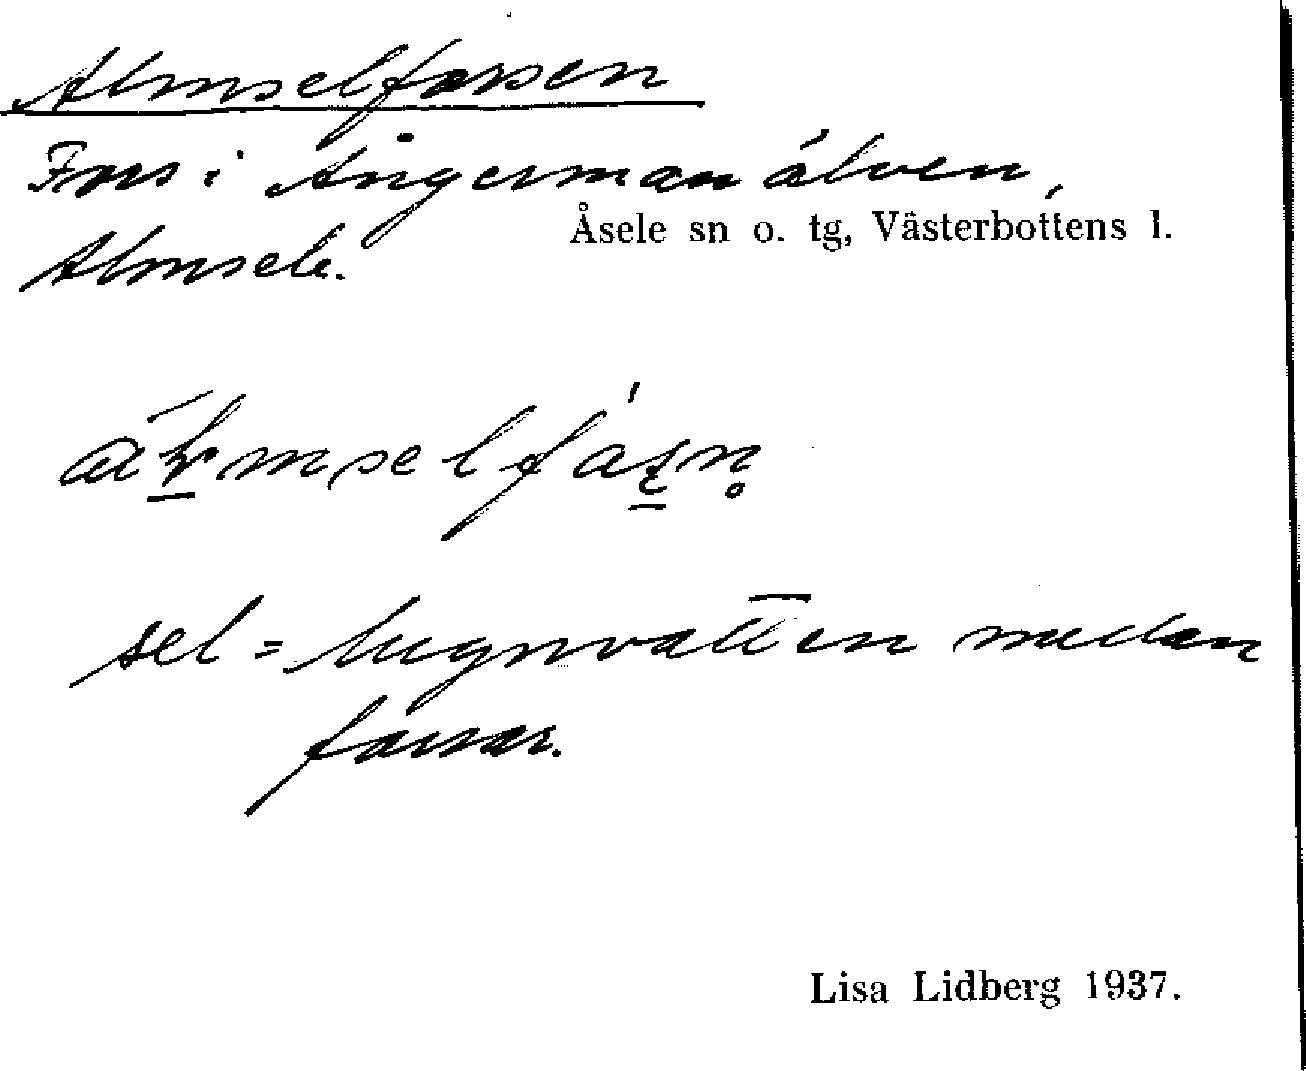 Almselforsen
Fors i Ångermanälven,
Åsele sn o. tg, Västerbottens l.
Almsele.
sel = lugnvatten nedan
forsar.
Lisa Lidberg 1937.